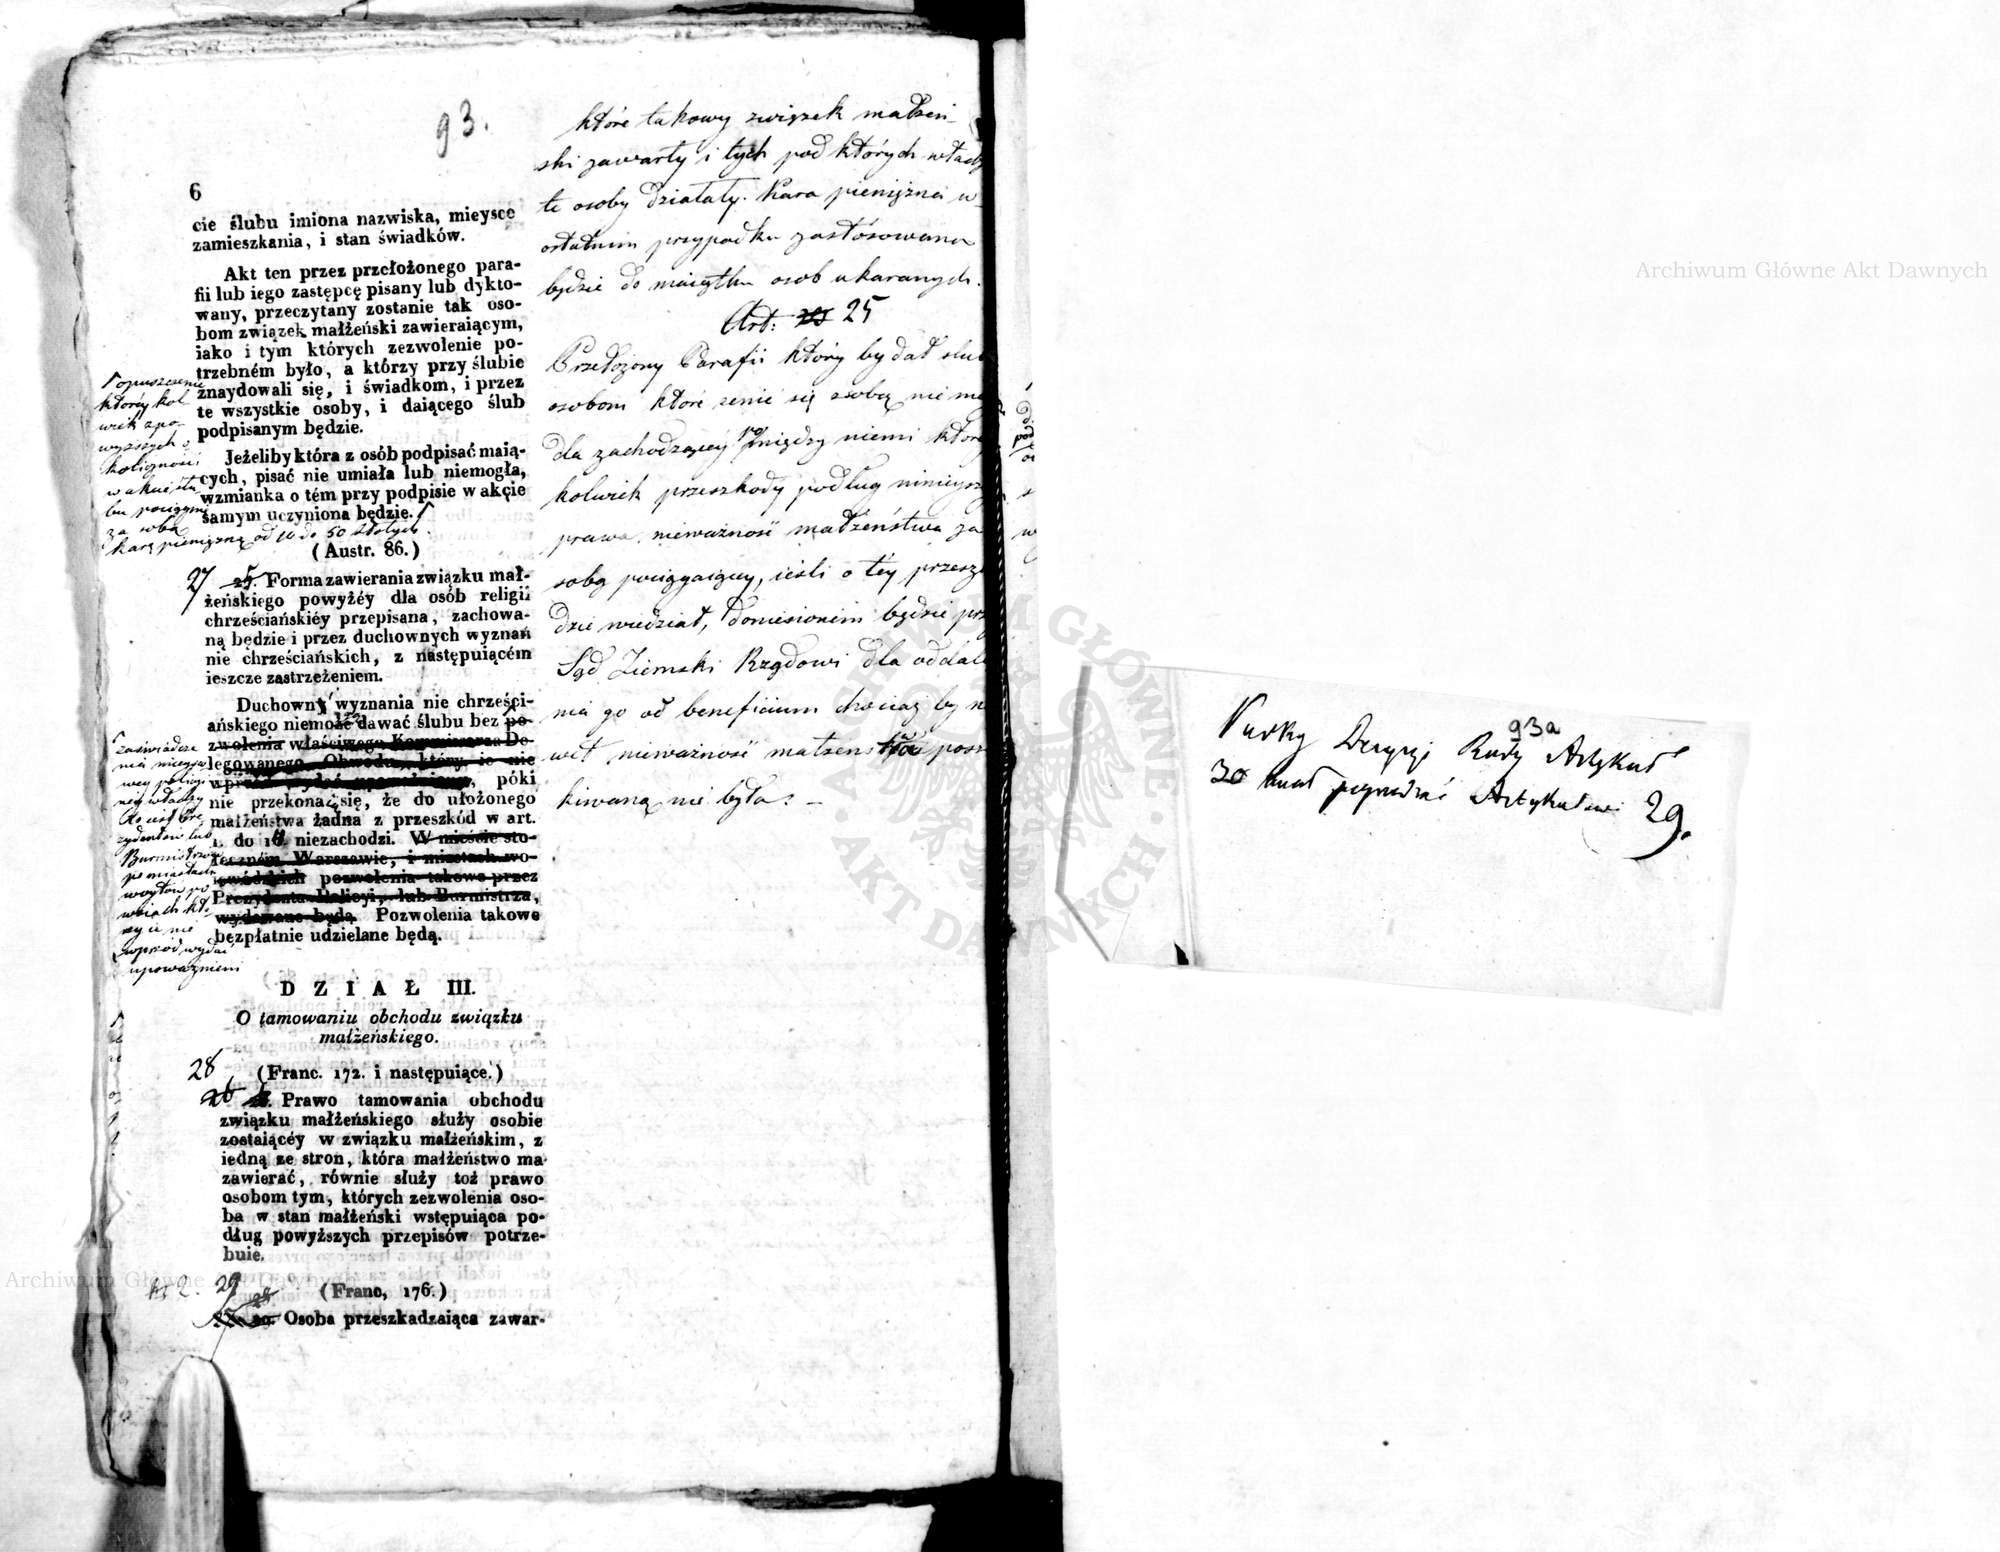 93.
6
cie ślubu imiona nazwiska, mieysce
zamieszkania, i stan świadków.
Akt ten przez przełożonego para-
fii lub iego zastępcę pisany lub dykto-
wany, przeczytany zostanie tak oso-
bom związek małżeński zawieraiącym,
iako i tym których zezwolenie po-
trzebném było, a którzy przy ślubie
znaydowali się, i świadkom, i przez
te wszystkie osoby, i daiącego ślub
podpisanym będzie.
Jeżeliby która z osób podpisać maią-
cych, pisać nie umiała lub niemogła,
wzmianka o tém przy podpisie w akcie
samym uczyniona będzie.
opuszczenie
którey kol
wiek z po-
wyższych o
kolicznosci
w akcie ślu
bu pociągnie
za sobą
karę pieniężną od 10 do 50 złotych.
(Austr. 86.)
27 25. Forma zawierania związku mał-
żeńskiego powyżéy dla osób religii
chrześciańskiéy przepisana, zachowa-
ną będzie i przez duchownych wyznań
nie chrześciańskich, z następuiącém
ieszcze zastrzeżeniem.
Duchowny wyznania nie chrześci-
ańskiego niemoże dawać ślubu bez po-
zwolenia właściwego Kommissarza De-
legowanego Obwodu, który ie nie
, póki
nie przekona się, że do ułożonego
małżeństwa żadna z przeszkód w art.
1. do 16. niezachodzi. W mieście sto-
łeczném Warszawie, i miastach wo-
iewódzkich pozwolenia takowe przez
Prezydenta Policyi, lub Burmistrza,
wydawane będą. Pozwolenia takowe
bezpłatnie udzielane będą.
zaświadcze
nia mieysco
wey policyi
ney władzy
to iest Pre
zydentów lub
Burmistrzów
po miastach
woytów po
wsiach któ
ry ie nie
wprzód wydać
upoważnieni
DZIAŁ III.
O tamowaniu obchodu związku
małżeńskiego.
28 (Franc. 172. i następuiące.)
26 Prawo tamowania obchodu
związku małżeńskiego służy osobie
zostaiącéy w związku małżeńskim, z
iedną ze stron, która małżeństwo ma
zawierać, równie służy toż prawo
osobom tym, których zezwolenia oso-
ba w stan małżeński wstępuiąca po-
dług powyższych przepisów potrze-
buie.
29 (Franc, 176.)
27. 28 Osoba przeszkadzaiąca zawar-
które takowy związek małżeń-
ski zawarły i tych pod których władzą
te osoby działały. Kara pieniężna w
ostatnim przypadku zastósowana
będzie do maiątku osob ukaranych.
Art: 25
Przełożony Parafii który by dał slub
osobom które żenić się z sobą nie mo
dla zachodzącey pomiędzy niemi które
kolwiek przeszkody podług ninieysze
prawa, nieważność małżeństwa za
sobą pociągaiącey, ieśli o tey przeszk
dzie wiedział, doniesionem będzie prz
Sąd Ziemski Rządowi dla oddale
nia go od beneficium chociaż by n
wet nieważność małżeństwa posz
kiwaną nie była. —
93a
Decyzji Rady Artykuł
30 miał poprzedzać Artykułowi 29.
Archiwum Główne Akt Dawnych
Archiwum Główne Akt Dawnych
ARCHIWUM GŁÓWNE • AKT DAWNYCH •